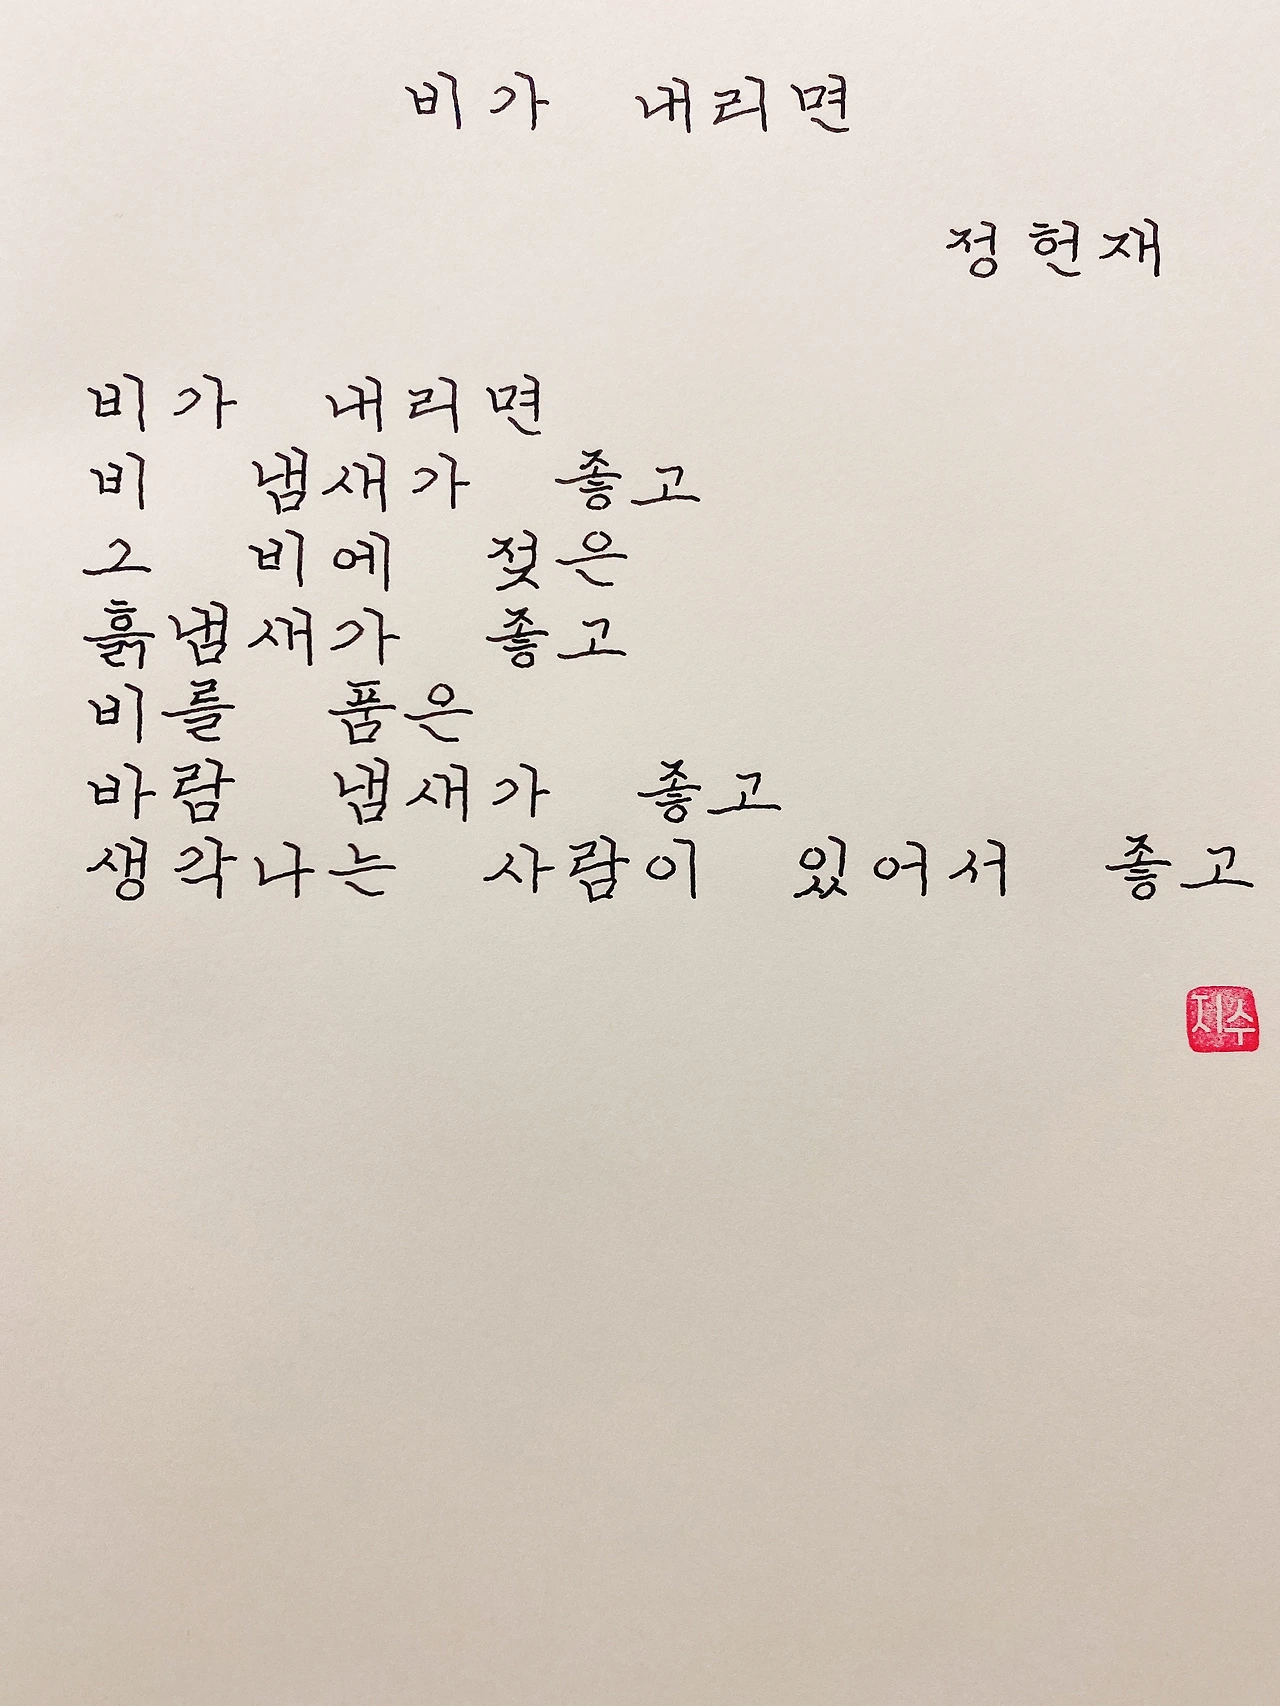 비가 내리면
정헌재
비가 내리면
비 냄새가 좋고
그 비에 젖은
흙냄새가 좋고
비를 품은
바람 냄새가 좋고
생각나는 사람이 있어서 좋고